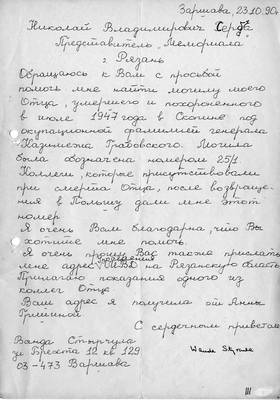 Варшава, 23.10.90г
Николай Владимирович Середа
Представитель „Мемориала
г Рязань
Обращаюсь к Вам с просьбой
помочь мне найти могилу моего
Отца, умершего и похороненного
в июле 1947 года в Скопине под
окупационной фамилией генерала
Казимежа Грабовского. Могила
была обозначена номером 25/1
Коллеги, которые присутствовали
при смерти Отца, после возвраще-
ния в Польшу дали мне этот
номер
Я очень Вам благодарна, что Вы
хотите мне помочь.
Я очень прошу Вас также прислать
мне адрес УМВД на Рязанскую область
Прилагаю показания одного из
коллег Отца
Ваш адрес я получила от Анны
Гришиной
С сердечным приветом
Ванда Стыпула
ул Брехта 12 кв 129
03-473 Варшава
III